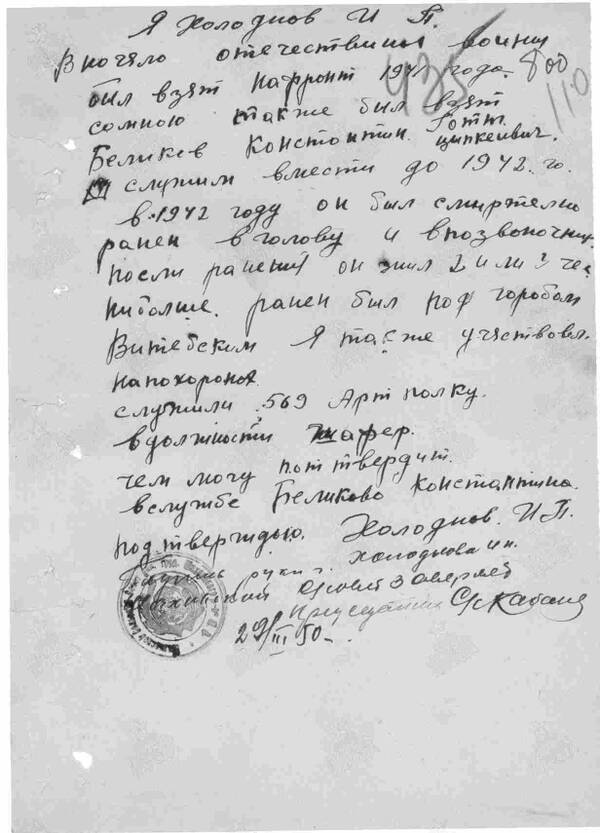 Я Холоднов И П.
В ночяло отечествиный воины
был взят нафронт 1941 года. 800
сомною также был взят 110
Беликов Константин
служили вмести до 1942. го.
в.1942 году он был смиртелно
ранен вголову и впозвоночник
посли ранений он жил 2 или 3 че
нибольше. ранен был под горобом
Витебском я также участвовал
напохоронах
служили 569 Арт полку.
вдолжности шафер.
чем могу поттвердит.
вслужбе Беликово Константина.
подтверждою. Холоднов. И.П.
руки г. Холоднова и п.
29/III 50-.